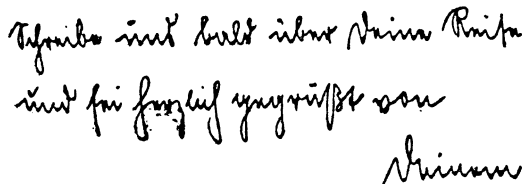 Schreibe uns bald über Deine Reise
und sei herzlich gegrüßt von
Deinem